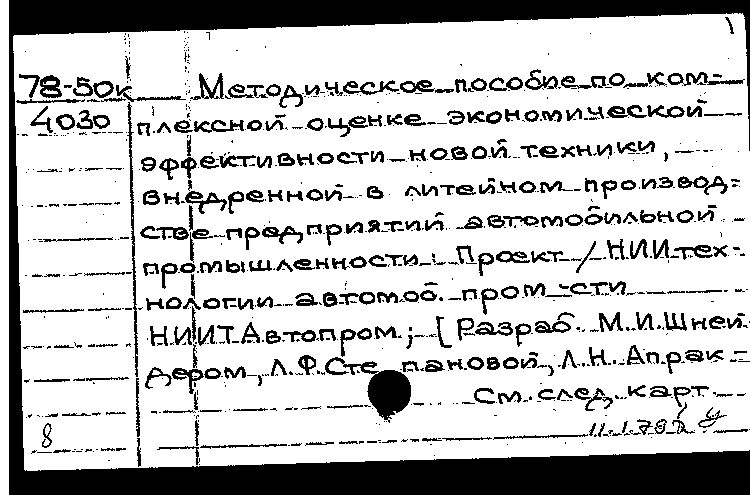 78-50к Методическое пособие по ком-
4030 плексной оценке экономической
эффективности новой техники,
внедренной в литейном производ-
стве предприятий автомобильной
промышленности: Проект / НИИ тех-
нологии автомоб. пром-сти
НИИТАвтопром; [Разраб. М.И.Шней-
дером, Л.Ф.Степановой, Л.Н. Апрак-
См. след. карт.
8 11.1.78